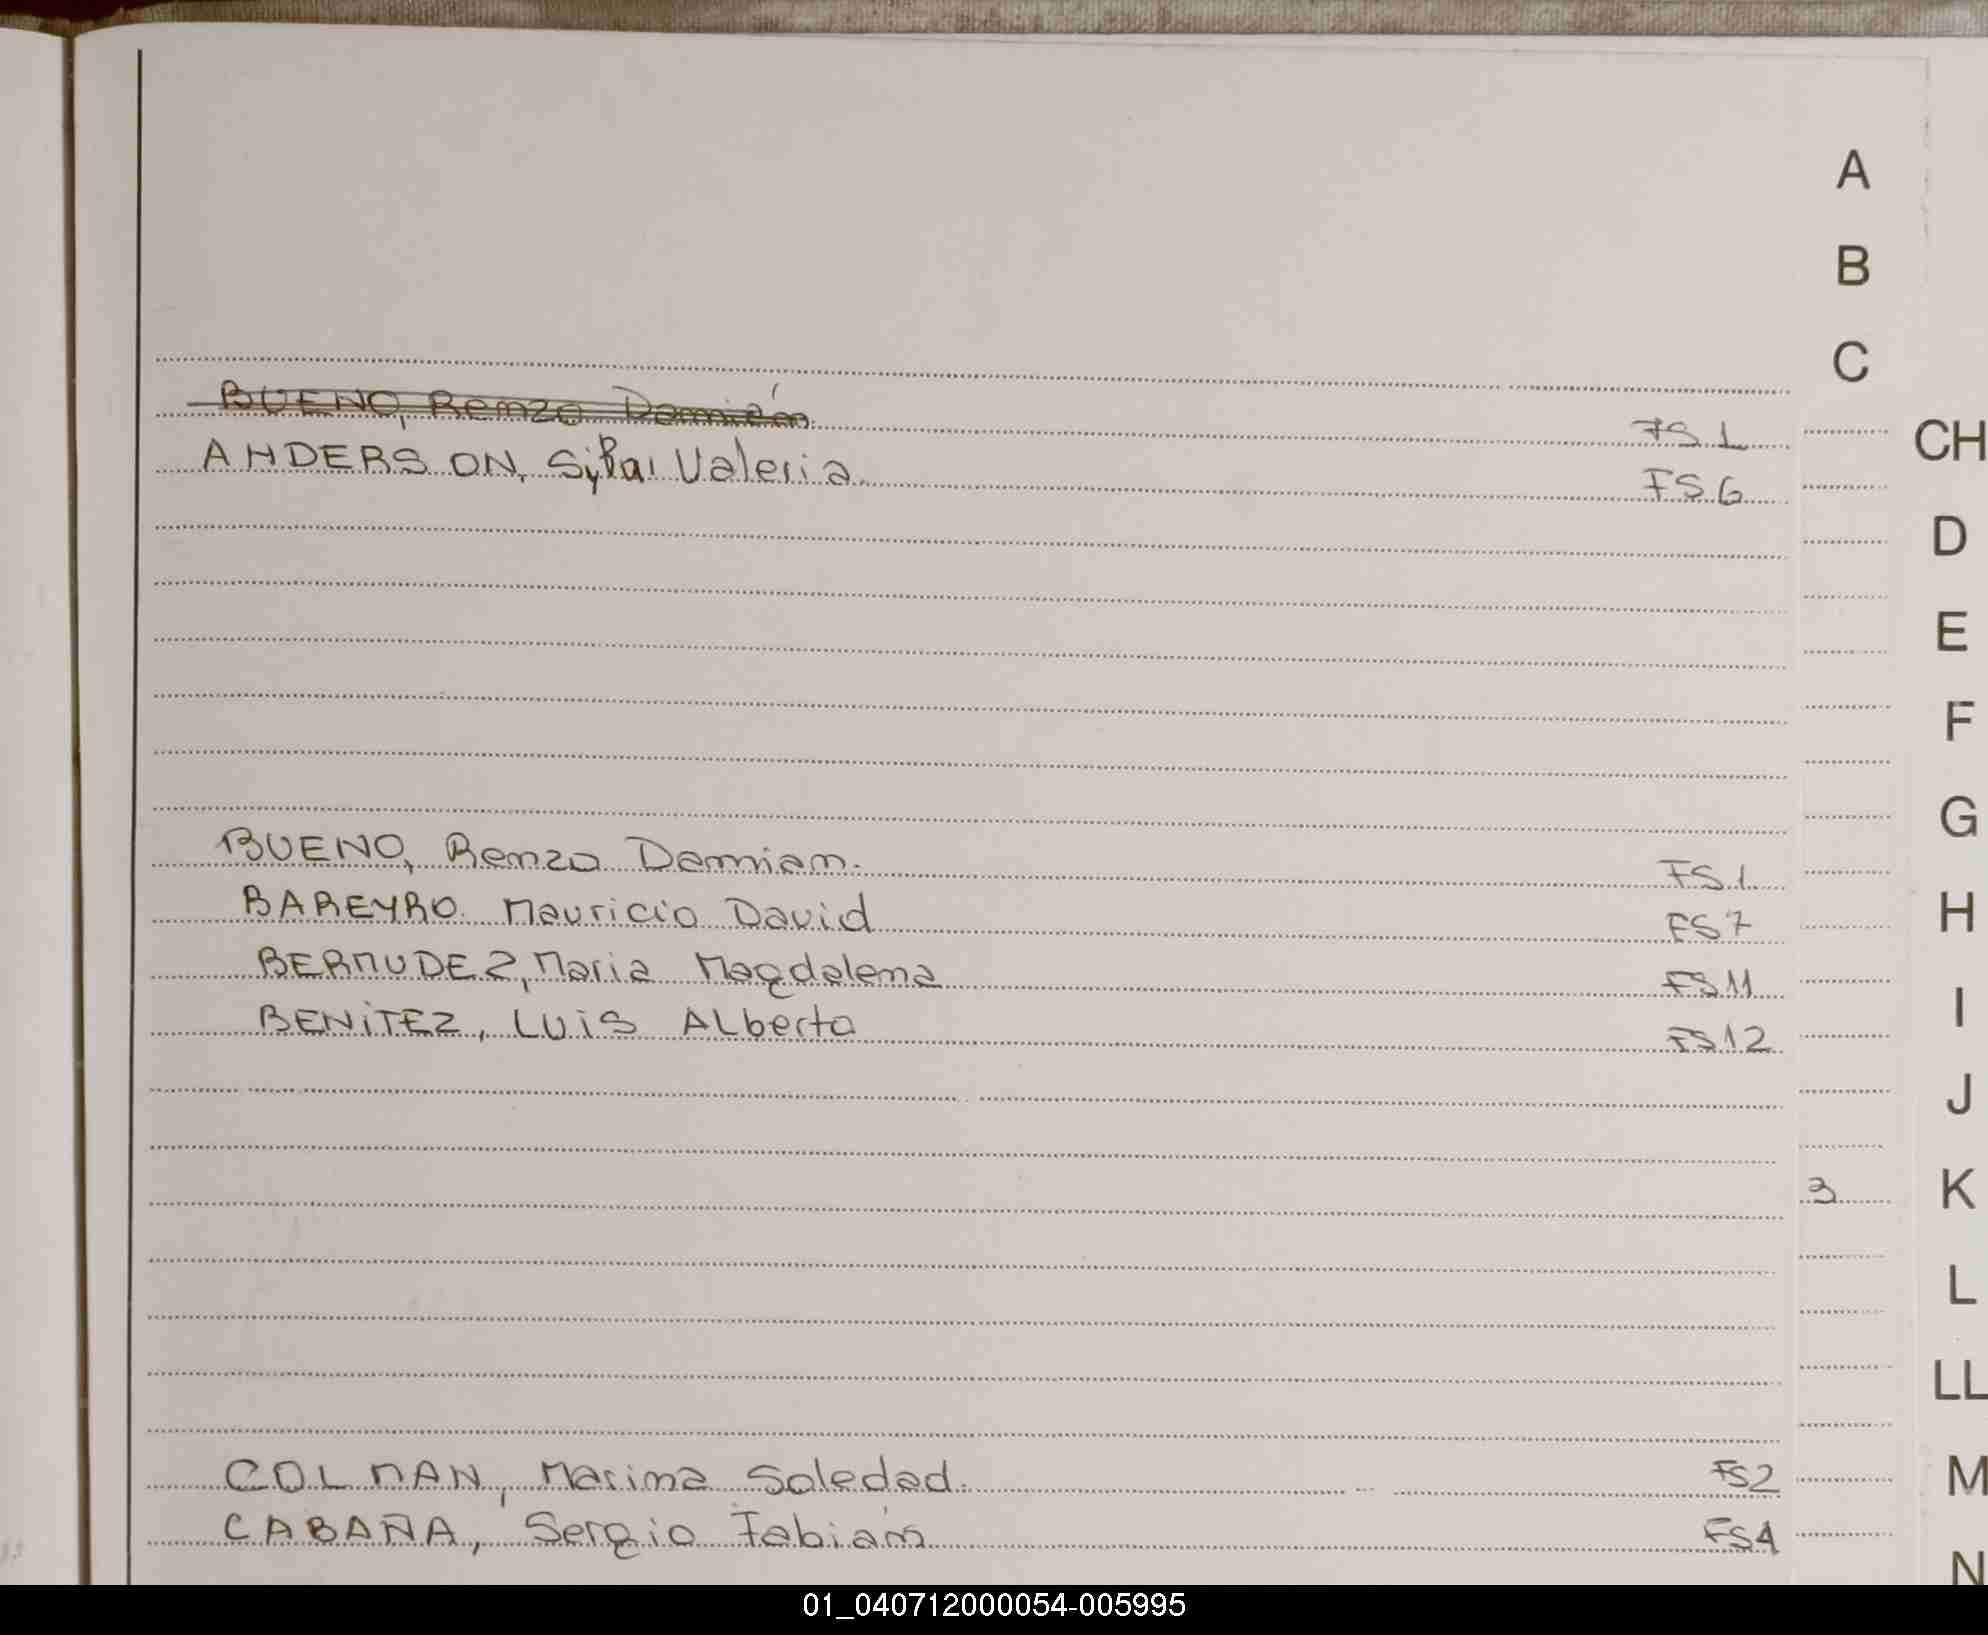 A
B
C
BUENO, Renzo Damián. FS 1
ANDERSON, Valeria. FS 6
CH
D
E
F
G
BUENO, Renzo Damian. FS 1
H
BAREYRO. Mauricio David FS 7
BERMUDEZ, Maria Magdalena FS 11
I
BENITEZ, LUIS ALberto FS 12
J
3 K
L
LL
COLMAN, Marina Soledad. FS 2
M
CABAÑA, Sergio Fabián FS 4
N
01_040712000054-005995